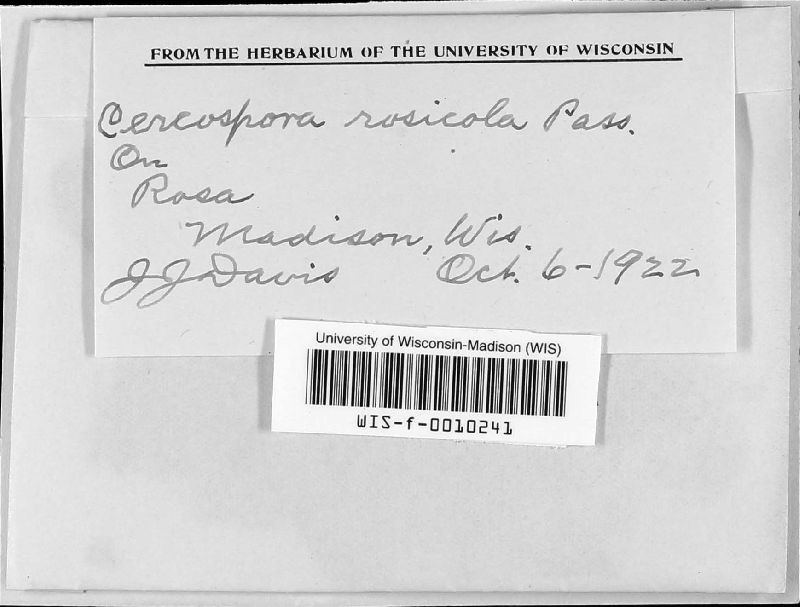 FROM THE HERBARIUM OF THE UNIVERSITY OF WISCONSIN
Cercospora rosicola Pass.
On
Rosa
Madison, Wis.
J J Davis Oct. 6-1922
University of Wisconsin-Madison (WIS)
WIS-f-0010241